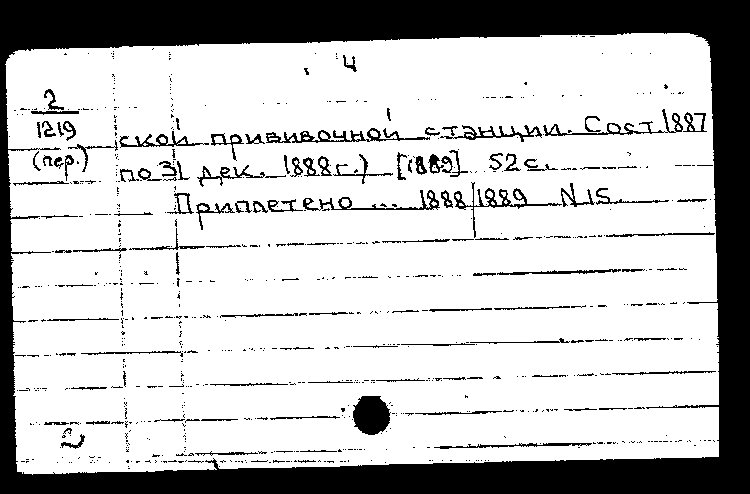 4
2
1219
(пер.)
ской прививочной станции. Сост. 1887
по 31 дек. 1888 г.) [1889] 52 с.
Приплетено ... 1888/1889 N 15.
2